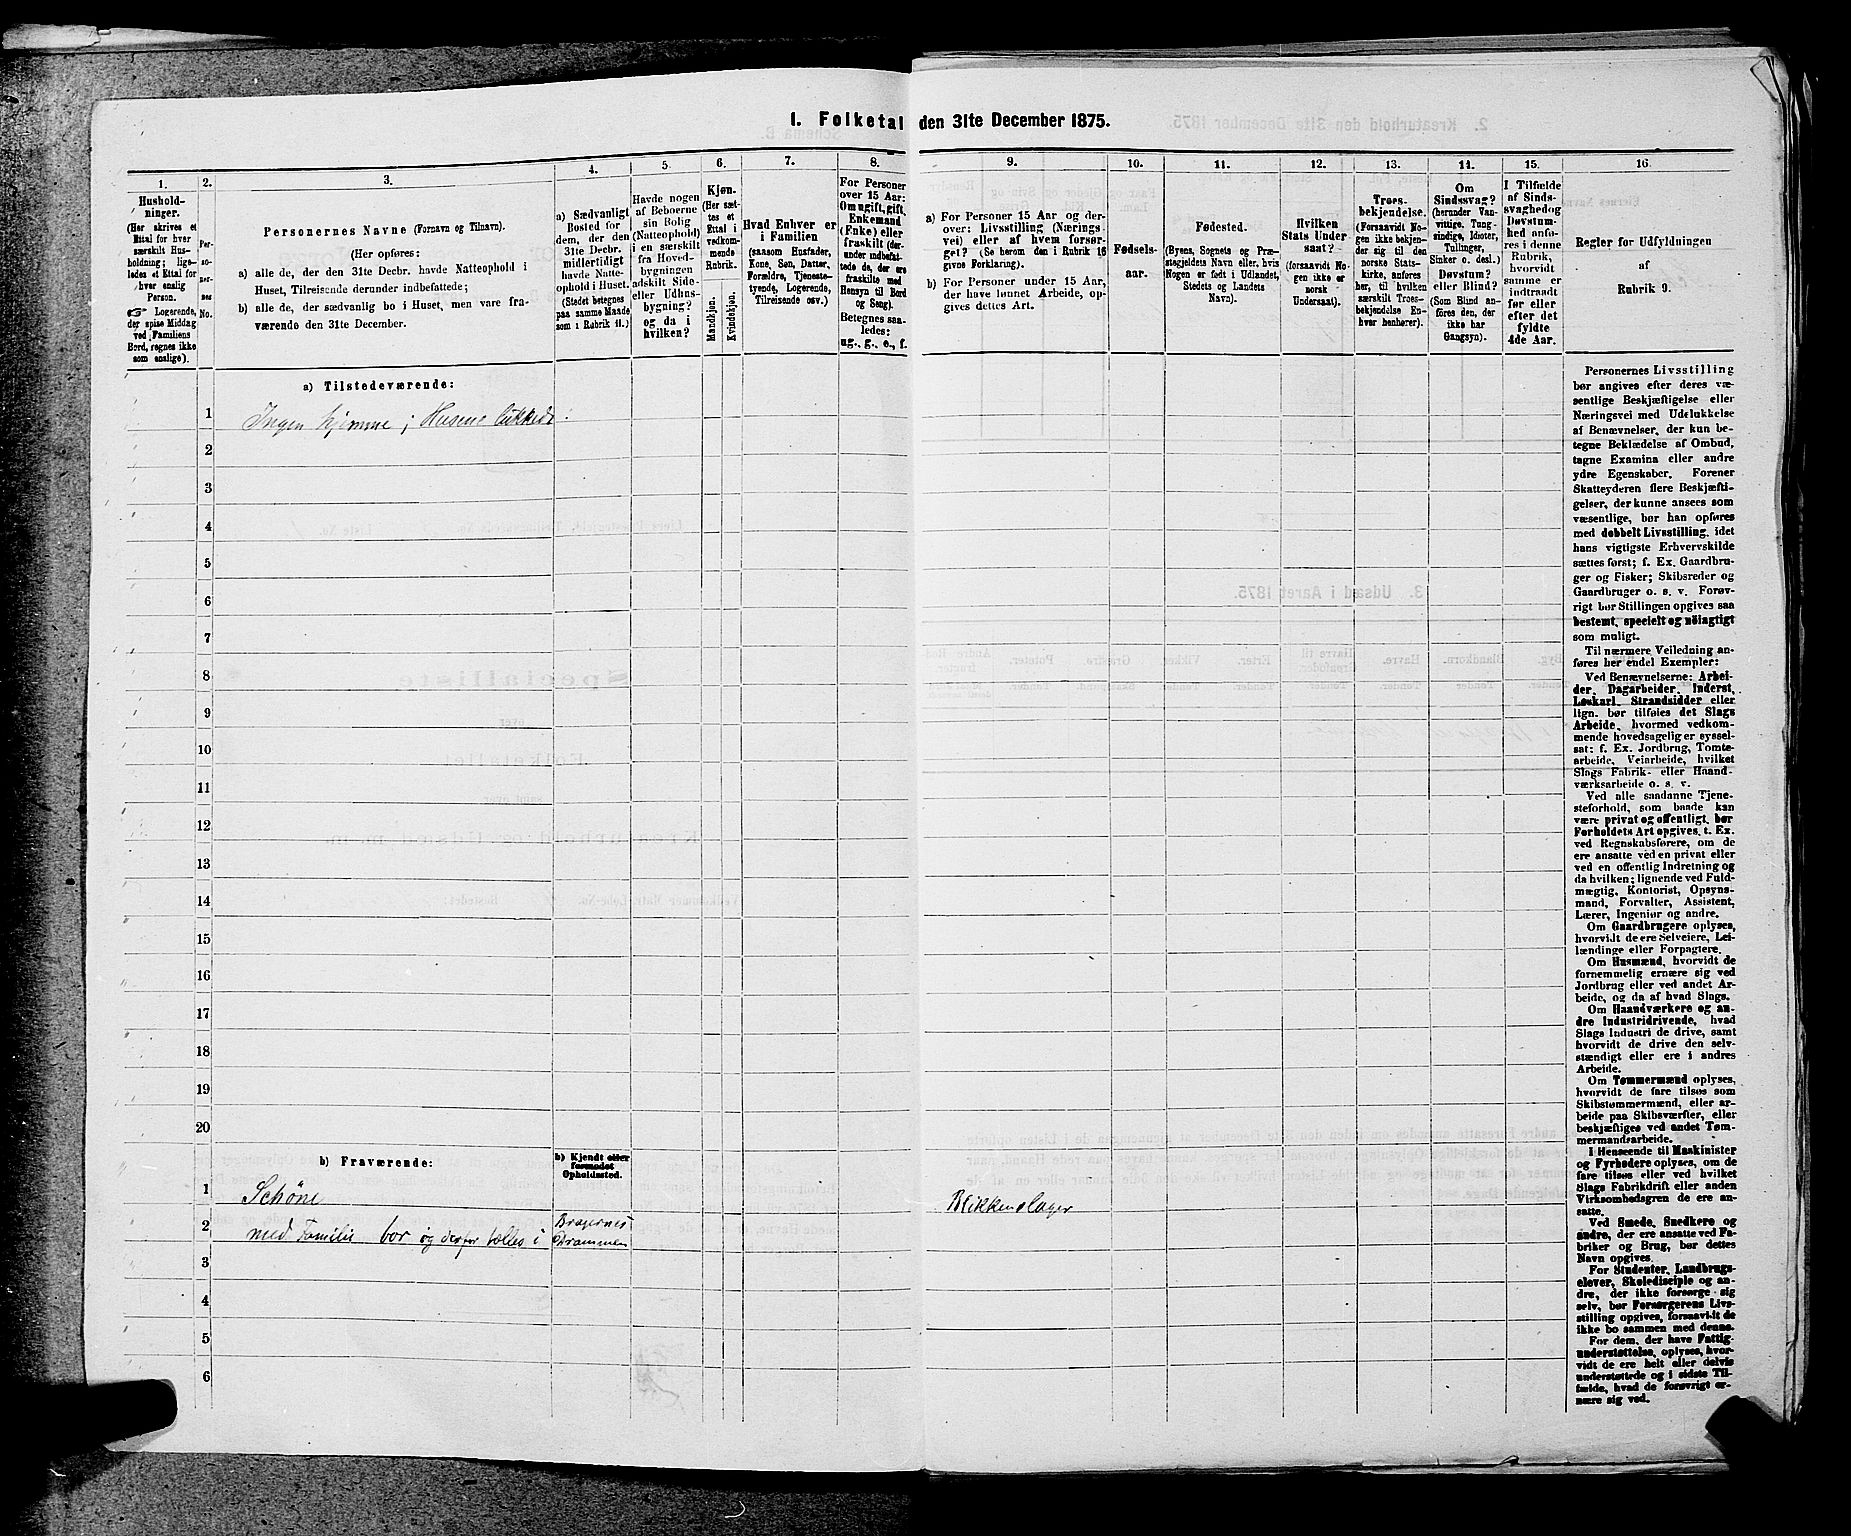 I. Folketal den 31te December 1875.
1.
2.
3.
4.
5.
6.
7.
8.
9.
10.
11.
12.
13.
14.
15.
16.
Hushold-
ninger.
(Her skrives et
Ettal for hver
særskilt Hus-
holdning; lige-
ledes et Ettal for
hver enslig
Person.
☞ Logerende,
der spise Middag
ved Familiens
Bord, regnes ikke
som enslige).
Per-
so-
ner-
nes
No.
Personernes Navne (Fornavn og Tilnavn).
(Her opføres:
a) alle de, der den 31te Decbr. havde Natteophold i
Huset, Tilreisende derunder indbefattede;
b) alle de, der sædvanlig bo i Huset, men vare fra-
værende den 31te December.
a) Sædvanligt
Bosted for
dem, der den
31te Decbr.
midlertidigt
havde Natte-
ophold i Huset.
(Stedet betegnes
paa samme Maade
som i Rubrik 11.)
Havde nogen
af Beboerne
sin Bolig
(Natteophold)
i en særskilt
fra Hoved-
bygningen
adskilt Side-
eller Udhus-
bygning?
og da i
hvilken?
Kjøn.
(Her sæt-
tes et
Ettal i
vedkom-
mende
Rubrik.
Mandkjøn.
Kvindekjøn.
Hvad Enhver er
i Familien
(saasom Husfader,
Kone, Søn, Datter,
Forældre, Tjeneste-
tyende, Logerende,
Tilreisende osv.)
For Personer
over 15 Aar:
Om ugift, gift,
Enkemand
(Enke) eller
fraskilt (der-
under indbefat-
tede de, der ere
fraskilte med
Hensyn til Bord
og Seng).
Betegnes saa-
ledes:
ug., g., e., f.
a) For Personer 15 Aar og der-
over: Livsstilling (Nærings-
vei) eller af hvem forsør-
get? (Se herom den i Rubrik 16
givne Forklaring).
b) For Personer under 15 Aar,
der have lønnet Arbeide, op-
gives dettes Art.
Fødsels-
aar.
Fødested.
(Byens, Sognets og Præ-
stegjeldets Navn eller, hvis
Nogen er født i Udlandet,
Stedets og Landets
Navn).
Hvilken
Stats Under
saat?
(forsaavidt No-
gen ikke er
norsk
Undersaat).
Troes-
bekjendelse.
(Forsaavidt No-
gen ikke bekjen-
der sig til den
norske Stats-
kirke, anføres
her, til hvilken
særskilt Troes-
bekjendelse En-
hver henhører).
Om
Sindssvag?
(herunder Van-
vittige, Tung-
sindige, Idioter,
Tullinger,
Sinker o. desl.)
Døvstum?
eller Blind?
(Som Blind an-
føres den, der
ikke har
Gangsyn).
I Tilfælde
af Sinds-
svaghed og
Døvstum-
hed anfø-
res i denne
Rubrik,
hvorvidt
samme er
indtraadt
før eller
efter det
fyldte
4de Aar.
Regler for Udfyldningen
af
Rubrik 9.
a) Tilstedeværende:
1 Ingen hjemme; Husene lukkede
2
3
4
5
6
7
8
9
10
11
12
13
14
15
16
17
18
19
20
b) Fraværende:
b) Kjendt eller
formodet
Opholdssted.
1 Schöne Blikkenslager
2 med Familie bor og derfor tælles i Bragernes Drammen
3
4
5
6
Personernes Livsstilling
bør angives efter deres væ-
sentlige Beskjæftigelse eller
Næringsvei med Udelukkelse
af Benævnelser, der kun be-
tegne Beklædelse af Ombud,
tagne Examina eller andre
ydre Egenskaber. Forener
Skatteyderen flere Beskjæfti-
gelser, der kunne ansees som
væsentlige, bør han opføres
med dobbelt Livsstilling, idet
hans vigtigste Erhvervskilde
sættes først; f. Ex. Gaardbru-
ger og Fisker; Skibsreder og
Gaardbruger o. s. v. Forøv-
rigt bør Stillingen opgives saa
bestemt, specielt og nöiagtigt
som muligt.
Til nærmere Veiledning an-
føres her endel Exempler:
Ved Benævnelserne: Arbei-
der, Dagarbeider, Inderst,
Løskarl, Strandsidder eller
lign. bør tilføies det Slags
Arbeide, hvormed vedkom-
mende hovedsagelig er syssel-
sat; f. Ex. Jordbrug, Tomte-
arbeide, Veiarbeide, hvilket
Slags Fabrik- eller Haand-
værksarbeide o. s. v.
Ved alle saadanne Tjene-
steforhold, som baade kan
være privat og offentligt, bør
Forholdets Art opgives, t. Ex.
ved Regnskabsførere, om de
ere ansatte ved en privat eller
ved en offentlig Indretning og
da hvilken; lignende ved Fuld-
mægtig, Kontorist, Opsyns-
mand, Forvalter, Assistent,
Lærer, Ingeniør og andre.
Om Gaardbrugere oplyses,
hvorvidt de ere Selveiere, Lei-
lændinge eller Forpagtere.
Om Husmænd, hvorvidt de
fornemmelig ernære sig ved
Jordbrug eller ved andet Ar-
beide, og da af hvad Slags.
Om Haandværkere og an-
dre Industridrivende, hvad
Slags Industri de drive, samt
hvorvidt de drive den selv-
stændigt eller ere i andres
Arbeide.
Om Tømmermænd oplyses,
hvorvidt de fare tilsøs som
Skibstømmermænd, eller ar-
beide paa Skibsværfter, eller
beskjæftiges ved andet Tøm-
mermandsarbeide.
I Henseende til Maskinister
og Fyrbødere oplyses, om de
fare tilsøs eller ved hvilket
Slags Fabrikdrift eller anden
Virksomhedsgren de ere an-
satte.
Ved Smede, Snedkere og
andre, der ere ansatte ved Fa-
briker og Brug, bør dettes
Navn opgives.
For Studenter, Landbrugs-
elever, Skoledisciple og an-
dre, der ikke forsørge sig
selv, bør Forsørgerens Livs-
stilling opgives, forsaavidt de
ikke bo sammen med denne.
For dem, der have Fattig-
understøttelse, oplyses, hvor-
vidt de ere helt eller delvis
understøttede og i sidste Til-
fælde, hvad de forøvrigt er-
nære sig ved.